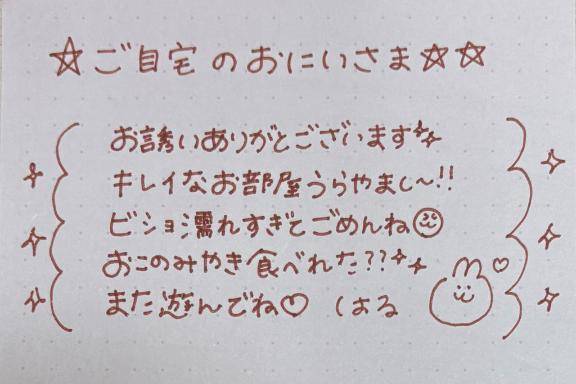 ☆ご自宅のおにいさま☆☆
お誘いありがとございます✨
キレイなお部屋うらやまし〜!!
ビショ濡れすぎてごめんね
おこのみやき食べれた??✨
また遊んでね♡ はる